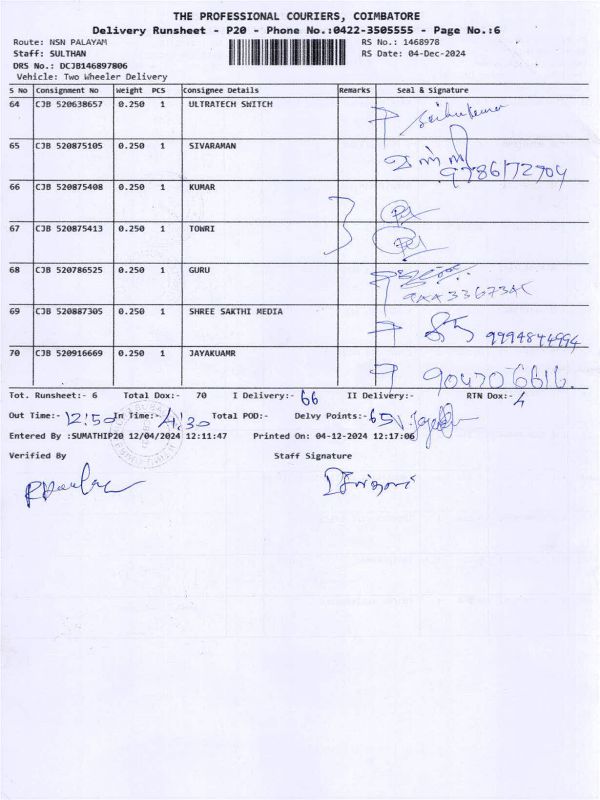 THE PROFESSIONAL COURIERS, COIMBATORE
Delivery Runsheet - P20 - Phone No.:0422-3505555 - Page No.:6
Route: NSN PALAYAM RS No.: 1468978
Staff: SULTHAN RS Date: 04-Dec-2024
DRS No.: DCJB146897806
Vehicle: Two Wheeler Delivery
S No Consignment No Weight PCS Consignee Details Remarks Seal & Signature
64 CJB 520638657 0.250 1 ULTRATECH SWITCH
65 CJB 520875105 0.250 1 SIVARAMAN
9786172704
66 CJB 520875408 0.250 1 KUMAR
67 CJB 520875413 0.250 1 TOWRI
68 CJB 520786525 0.250 1 GURU
69 CJB 520887305 0.250 1 SHREE SAKTHI MEDIA
9994844994
70 CJB 520916669 0.250 1 JAYAKUAMR
904706616.
Tot. Runsheet:- 6 Total Dox:- 70 I Delivery:- 66 II Delivery:- RTN Dox:- 4
Out Time:- 12:50 In Time:- 4:30 Total POD:- Delvy Points:- 65
Entered By :SUMATHIP20 12/04/2024 12:11:47 Printed On: 04-12-2024 12:17:06
Verified By Staff Signature